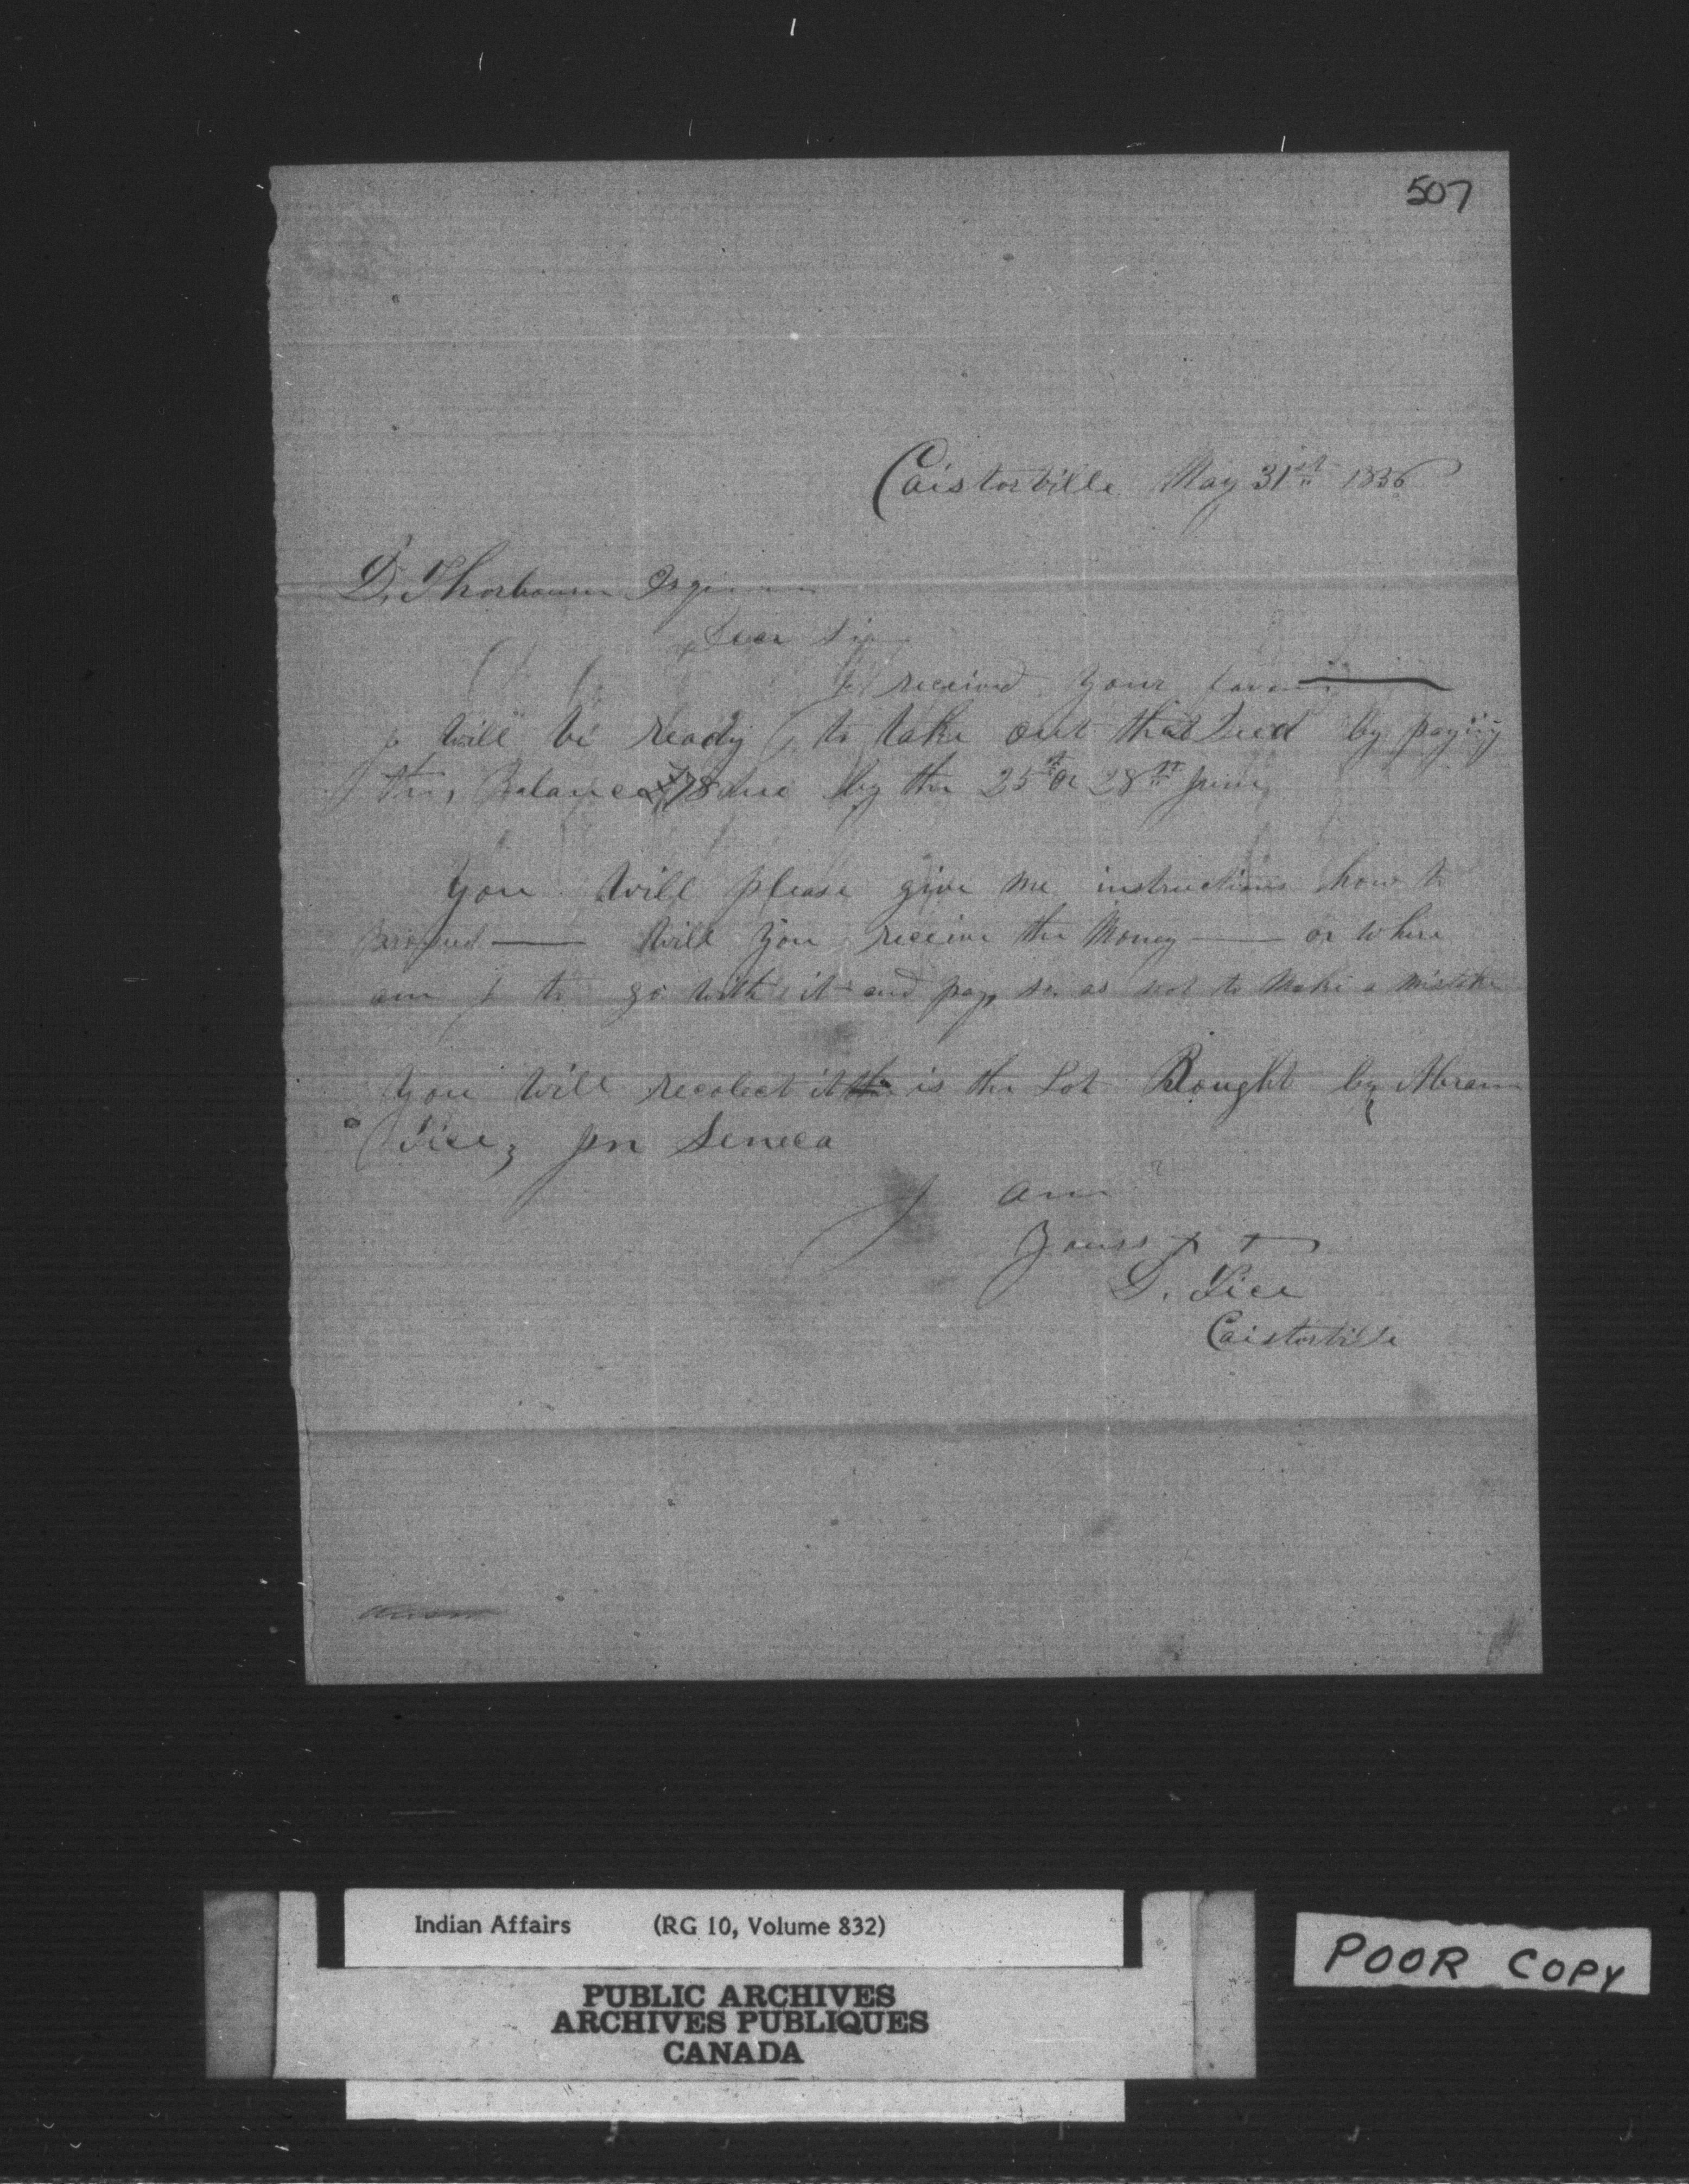 507
Caistorville May 31st 1856
D. Thorburn Esqr
Dear Sir
I received your favour
I will be ready to take out that Deed by paying
the Balance £78 due by the 25th or 28th June
You will please give me instructions how to
Will you receive the Money — or where
am I to go with it and pay so as not to Make a Mistake
You will recolect it the is the Lot Bought by Abram
Tice, In Seneca
I am
Yours + +
D. Tice
Caistorville
Indian Affairs (RG 10, Volume 832)
PUBLIC ARCHIVES
ARCHIVES PUBLIQUES
CANADA
POOR COPY